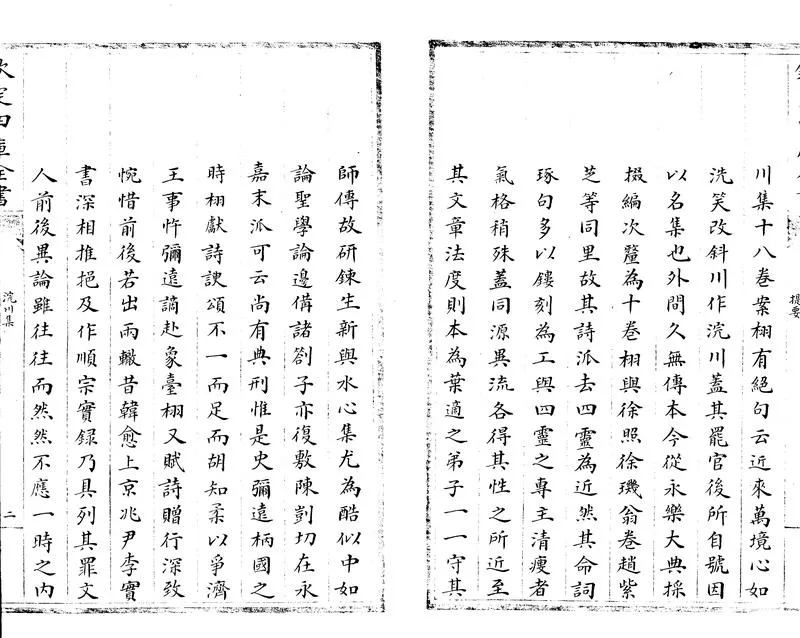 提要
川集十八卷案栩有絕句云近來萬境心如
洗笑改斜川作浣川蓋其罷官後所自號因
以名集也外間久無傳本今從永樂大典採
掇編次釐為十卷栩與徐照徐璣翁卷趙紫
芝等同里故其詩派去四靈為近然其命詞
琢句多以鏤刻為工與四靈之專主清瘦者
氣格稍殊蓋同源異流各得其性之所近至
其文章法度則本為葉適之弟子一一守其
師傳故研鍊生新與水心集尤為酷似中如
論聖學論邊備諸劄子亦復敷陳剴切在永
嘉末派可云尚有典刑惟是史彌遠柄國之
時栩獻詩諛頌不一而足而胡知柔以爭濟
王事忤彌遠謫赴象臺栩又賦詩贈行深致
惋惜前後若出兩轍昔韓愈上京兆尹李實
書深相推挹及作順宗實録乃具列其罪文
人前後異論雖往往而然然不應一時之内
欽定四庫全書
浣川集
二